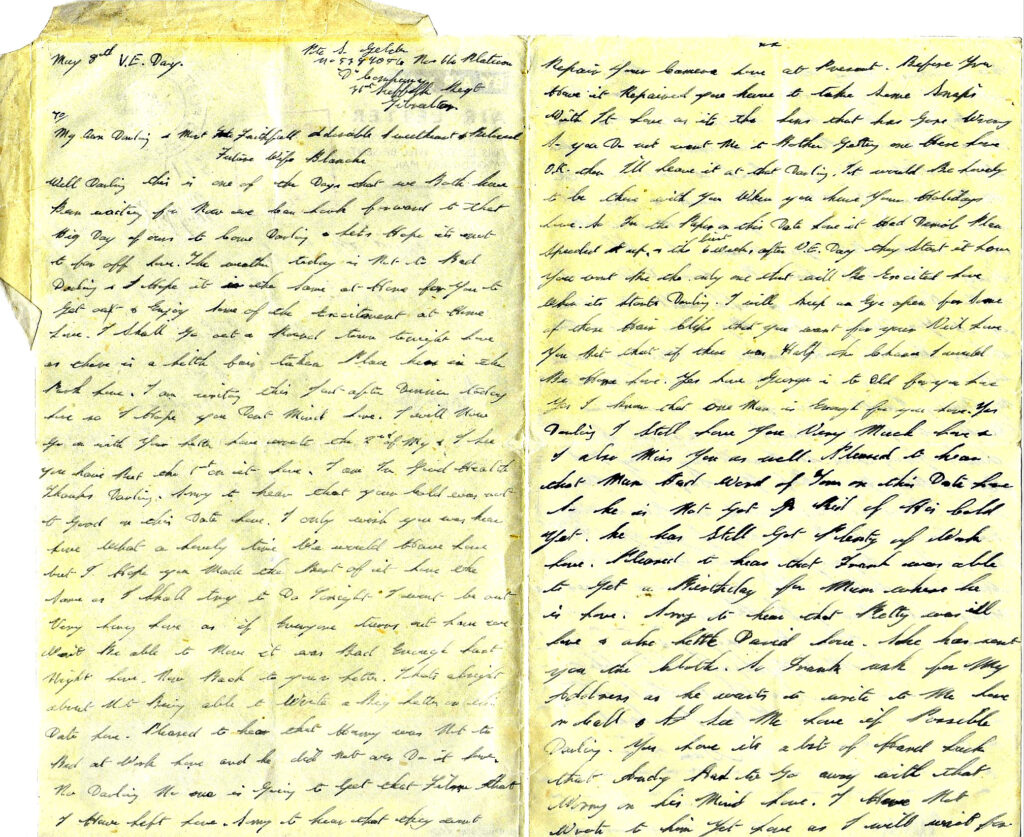 May 8th V.E. Day.
Pte S. Gelder
No 5394056 No 16 Platoon
"D" Company
Suffolk Regt
Gibraltar
To
My Own Darling & Most Faithfull Adorable Sweetheart & Beloved
Future Wife Blanche
Well Darling this is one of the Days that we Both have
Been waiting for Now we can look forward to that
Big Day of ours to Come Darling & let's Hope it's not
to far off love. The weather today is Not to Bad
Darling & I Hope it is the Same at Home for You to
Get out & Enjoy Some of the Excitement at Home
love. I Shall Go out & Around town tonight love
as there is a little fair taken Place here in the
Park love. I am writing this Just after Dinner today
love so I Hope you Dont Mind love. I will Now
Go on with Your letter love wrote the 2nd of May & I see
you have Put the 1st on it love. I am In Good Health
Thanks Darling. Sorry to hear that your Cold was not
to Good on this Date love. I only wish you was here
love What a lovely time We would Have love
but I Hope you Made the Best of it love the
Same as I Shall try to Do Tonight I wont be out
Very long love as if Everyone turns out love we
Wont Be able to Move it was Bad Enough last
Night love. Now Back to your letter. Thats alright
about Not Being able to Write a Big letter on this
Date love. Pleased to hear that Harry was Not to
Bad at Work love and he did Not over Do it love.
No Darling No one is Going to Get that Film that
I Have left love. Sorry to hear that they cant
Repair Your Camera love at Present. Before You
Have it Repaired you have to take Some Snaps
With It love as its the lens that has Gone Wrong
So you Do not want Me to Bother Getting one Here love
O.K. then I'll leave it at that Darling. It would Be lovely
to be there with You When you have Your Holidays
love. So In the Papers on this Date love it Had Demob Plan
Speeded Up, & the first 6 weeks after V.E. Day they Start it love
You wont Be the only one that will Be Excited love
When its Starts Darling. I will keep an Eye open for Some
of those Hair Clips that you want for your Veil love
You Bet that if there was Half the Chance I would
Be Home love. Yes love George is to Old for you love
Yes I know that one Man is Enough for you love. Yes
Darling I Still love You Very Much love &
I also Miss You as well. Pleased to hear
that Mum Had Word of Tom on this Date love
So he is Not Got Rid of His Cold
Yet. he has Still Got Plenty of Work
love. Pleased to hear that Frank was able
to Get a Birthday for Mum where he
is love. Sorry to hear that Betty was ill
love & also little David love. She has sent
you the Cloth. So Frank ask for My
Address as he wants to write to Me love
or call & see Me love if Possible
Darling. Yes love its a bit of Hard luck
that Andy Had to Go away with that
Worry on his Mind love. I Have Not
Wrote to him Yet love as I will wait for